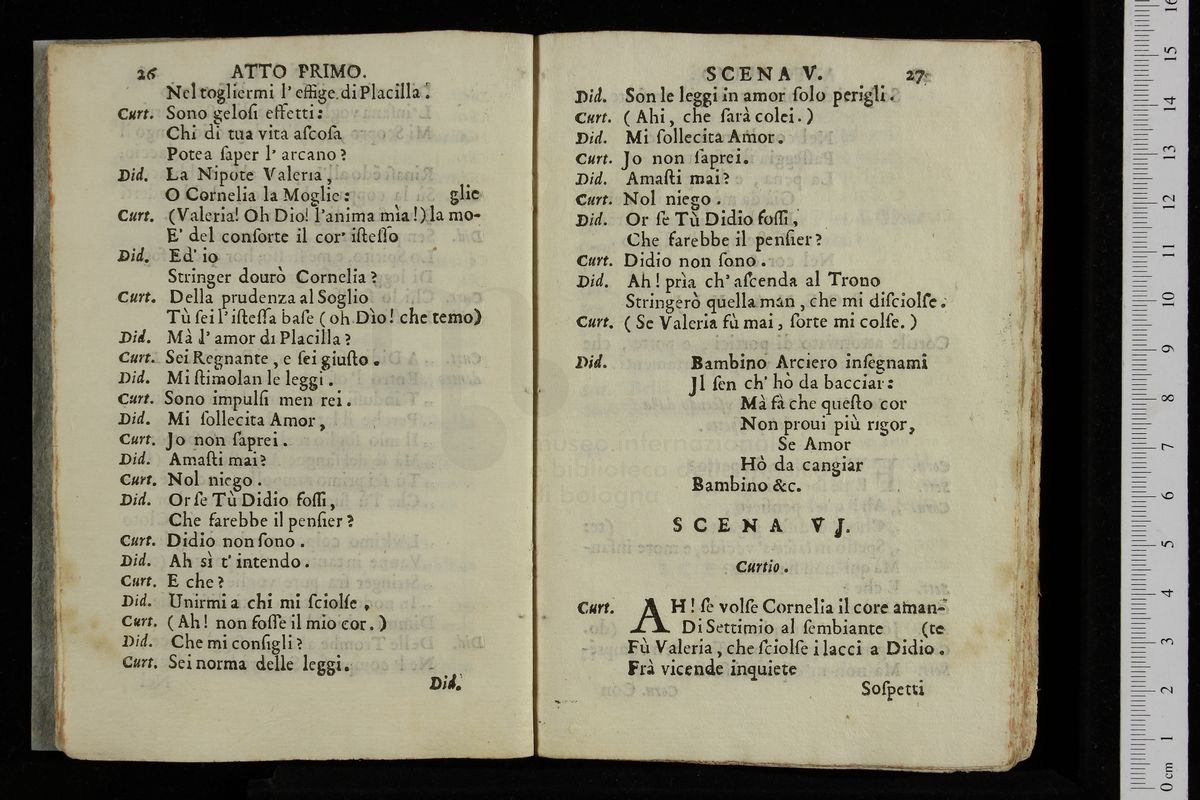 26 ATTO PRIMO.
Nel togliermi l' effige di Placilla.
Curt. Sono gelosi effetti:
Chi di tua vita ascosa
Potea saper l' arcano?
Did. La Nipote Valeria,
O Cornelia la Moglie: glie
Curt. (Valeria! Oh Dio! l'anima mia!) la mo-
E' del consorte il cor' istesso
Did. Ed' io
Stringer dourò Cornelia?
Curt. Della prudenza al Soglio
Tù sei l' istessa base ( oh Dìo! che temo)
Did. Mà l' amor di Placilla?
Curt. Sei Regnante, e sei giusto.
Did. Mi stimolan le leggi.
Curt. Sono impulsi men rei.
Did. Mi sollecita Amor,
Curt. Jo non saprei.
Did. Amasti mai?
Curt. Nol niego.
Did. Or se Tù Didio fossi,
Che farebbe il pensier?
Curt. Didio non sono.
Did. Ah sì t' intendo.
Curt. E che?
Did. Unirmi a chi mi sciolse,
Curt. (Ah! non fosse il mio cor.)
Did. Che mi consigli?
Curt. Sei norma delle leggi.
Did.
SCENA V. 27
Did. Son le leggi in amor solo perigli.
Curt. (Ahi, che sarà colei.)
Did. Mi sollecita Amor.
Curt. Jo non saprei.
Did. Amasti mai?
Curt. Nol niego.
Did. Or se Tù Didio fossi,
Che farebbe il pensier?
Curt. Didio non sono.
Did. Ah! prìa ch' ascenda al Trono
Stringerò quella man, che mi disciolse.
Curt. (Se Valeria fù mai, forte mi colse.)
Did. Bambino Arciero insegnami
Jl sen ch' hò da bacciar:
Mà fà che questo cor
Non proui più rigor,
Se Amor
Hò da cangiar
Bambino &c.
SCENA VJ.
Curtio.
Curt. AH! se volse Cornelia il core aman-
Di Settimio al sembiante (te
Fù Valeria, che sciolse i lacci a Didio.
Frà vicende inquiete
Sospetti
museo internazionale
e biblioteca della
di bologna
0 cm 1 2 3 4 5 6 7 8 9 10 11 12 13 14 15 16